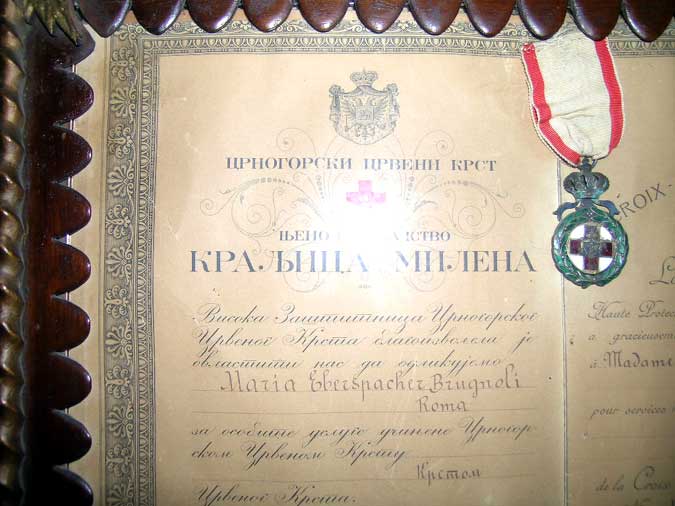 ЦРНОГОРСКИ ЦРВЕНИ КРСТ
ЊЕНО
КРАЉИЦА МИЛЕНА
Висока Заштитница Црногорскоē
Црвеноē Крста благоизволела је
овластити нас да одликујемо
Maria Eberspacher Brugnoli
Roma
за особите делујо учињене Црногор-
ском Црвеном Крсту
Крстом
Црвеноē Крста.
CROIX-
Haute Protec
a gracieusem
à Madame
pour services
de la Croix